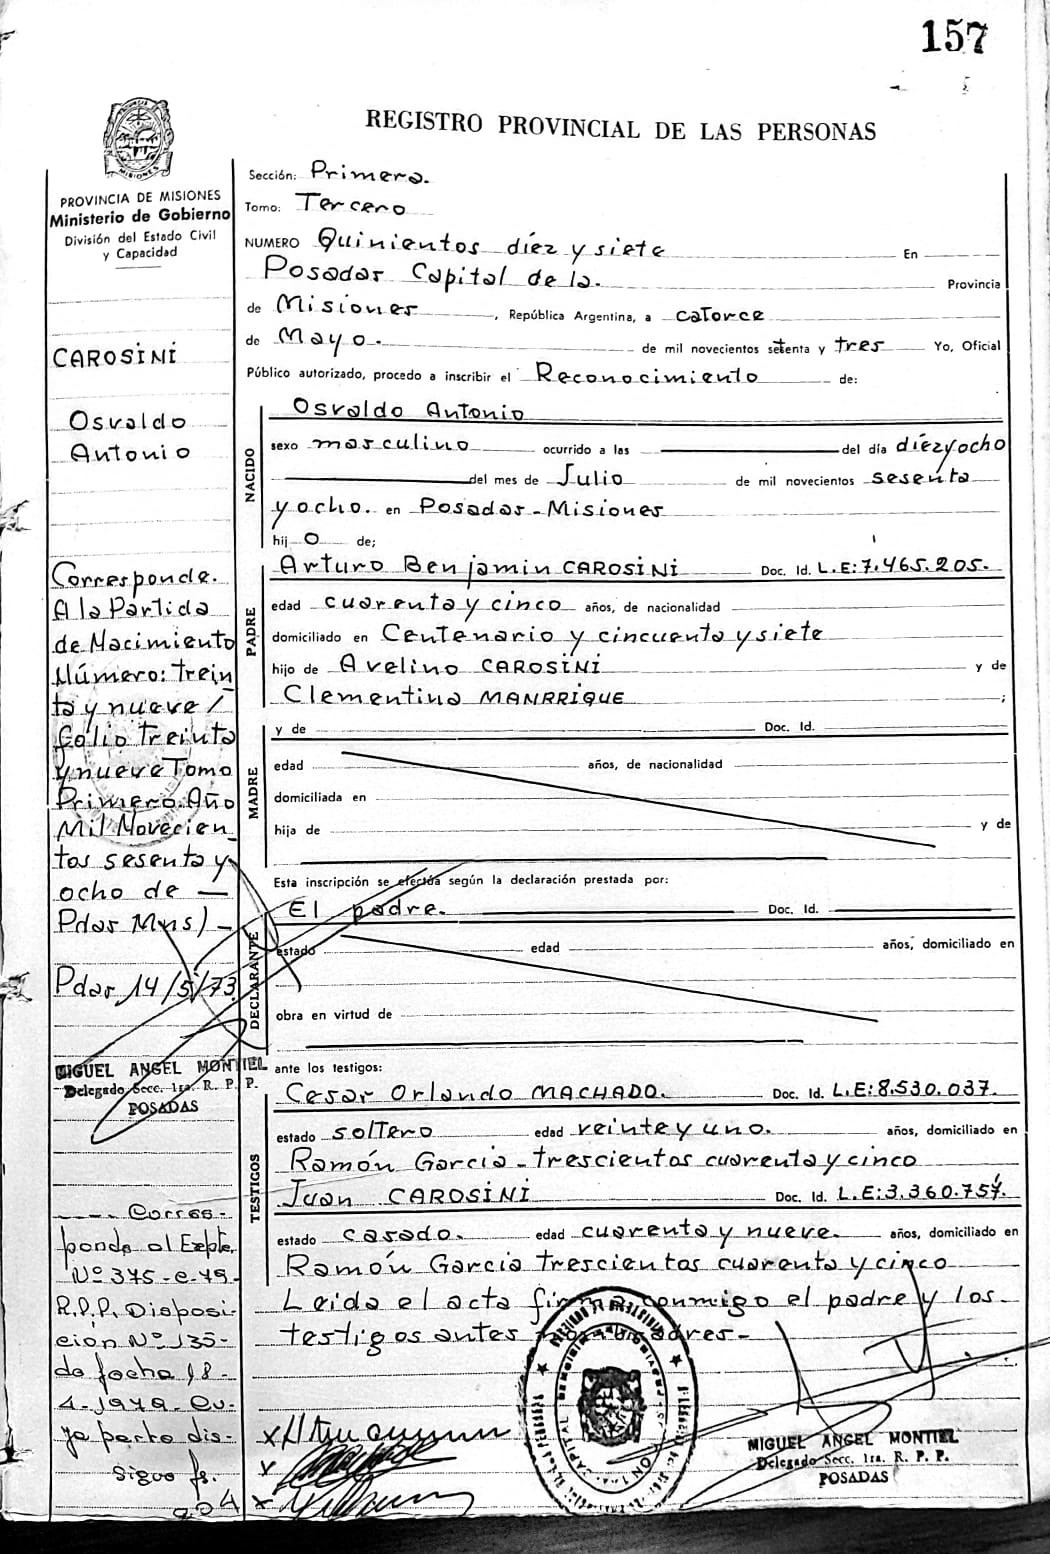 157
REGISTRO PROVINCIAL DE LAS PERSONAS
MISIONES
PROVINCIA DE MISIONES
Ministerio de Gobierno
División del Estado Civil
y Capacidad
CAROSINI
Osvaldo
Antonio
Corresponde.
A la Partida
de Nacimiento
Número: trein
ta y nueve /
Folio Treinta
y nueve Tomo
Primero. Año
Mil Novecien
tos sesenta y
ocho de —
Pdas Mns) -
Pdas 14/5/73
MIGUEL ANGEL MONTIEL
Delegado Secc. 1ra. R. P. P.
POSADAS
Corres-
ponde al Expte.
Nº 375-e-79-
R.P.P. Disposi-
ción Nº 135-
de fecha 18-
4-1979- Cu-
ya parte dis-
Sigue fs.
204
Sección: Primera.
Tomo: Tercero
NUMERO Quinientos diez y siete En
Posadas Capital de la. Provincia
de Misiones, República Argentina, a catorce
de Mayo. de mil novecientos setenta y tres Yo, Oficial
Público autorizado, procedo a inscribir el Reconocimiento de:
NACIDO
Osvaldo Antonio
sexo masculino ocurrido a las — del día diez y ocho
— del mes de Julio de mil novecientos sesenta
y ocho. en Posadas-Misiones
hij o de;
PADRE
Arturo Benjamin CAROSINI Doc. Id. L.E:7.465.205.
edad cuarenta y cinco años, de nacionalidad
domiciliado en Centenario y cincuenta y siete
hijo de Avelino CAROSINI y de
Clementina MANRRIQUE ;
MADRE
y de Doc. Id.
edad años, de nacionalidad
domiciliada en
hija de y de
Esta inscripción se efectúa según la declaración prestada por:
DECLARANTE
El padre. Doc. Id.
estado edad años, domiciliado en
obra en virtud de
ante los testigos:
TESTIGOS
Cesar Orlando MACHADO. Doc. Id. L.E:8.530.037.
estado soltero edad veinte y uno. años, domiciliado en
Ramón Garcia - trescientos cuarenta y cinco
Juan CAROSINI Doc. Id. L.E:3.360.757.
estado casado. edad cuarenta y nueve. años, domiciliado en
Ramón Garcia Trescientos cuarenta y cinco
Leida el acta firma conmigo el padre y los
testigos antes
MIGUEL ANGEL MONTIEL
Delegado Secc. 1ra. R. P. P.
POSADAS